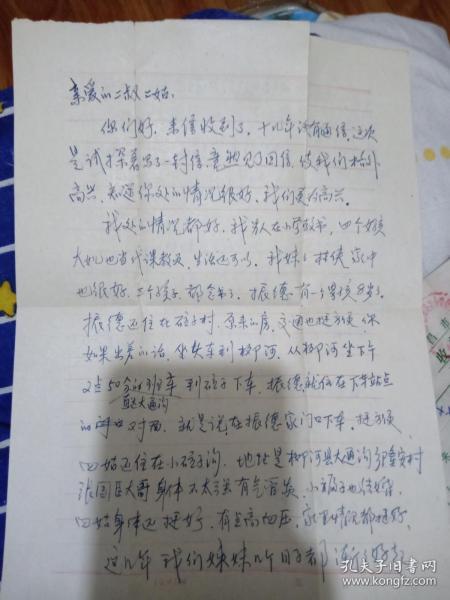 亲爱的二叔二姑:
你们好,来信收到了,十几年没有通信,这次
是试探着写了一封信,竟然见了回信,使我们格外
高兴,知道你处的情况很好,我们更为高兴。
我处的情况都好,我 在小学教书,四个孩
大 也当代课教员,生活还可以,我妹 家中
也很好,三个孩子都 了,振德有一男孩8岁了,
振德还住在 子村,原来的房,交通也挺方便,你
如果出差的话,坐火车到柳河,从柳河坐下午
2点50分的班车到 子下车,振德就住在下车站点
直达大通沟
的 对面,就是说,在振德家门口下车,挺方便,
四姑还住在小 子沟,地址是柳河县大通沟乡 安村
张国臣大哥身体不太强,有气管炎,小 子也结婚,
四姑身体还挺好,有点高血压,家里情况都挺好,
这几年我们姊妹 日子都渐渐好起
孔夫子旧书网